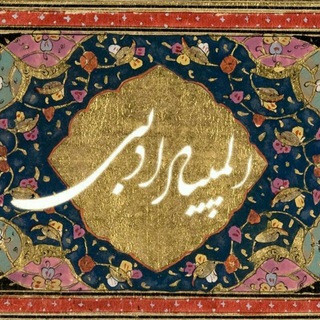 المپیاد ادبی